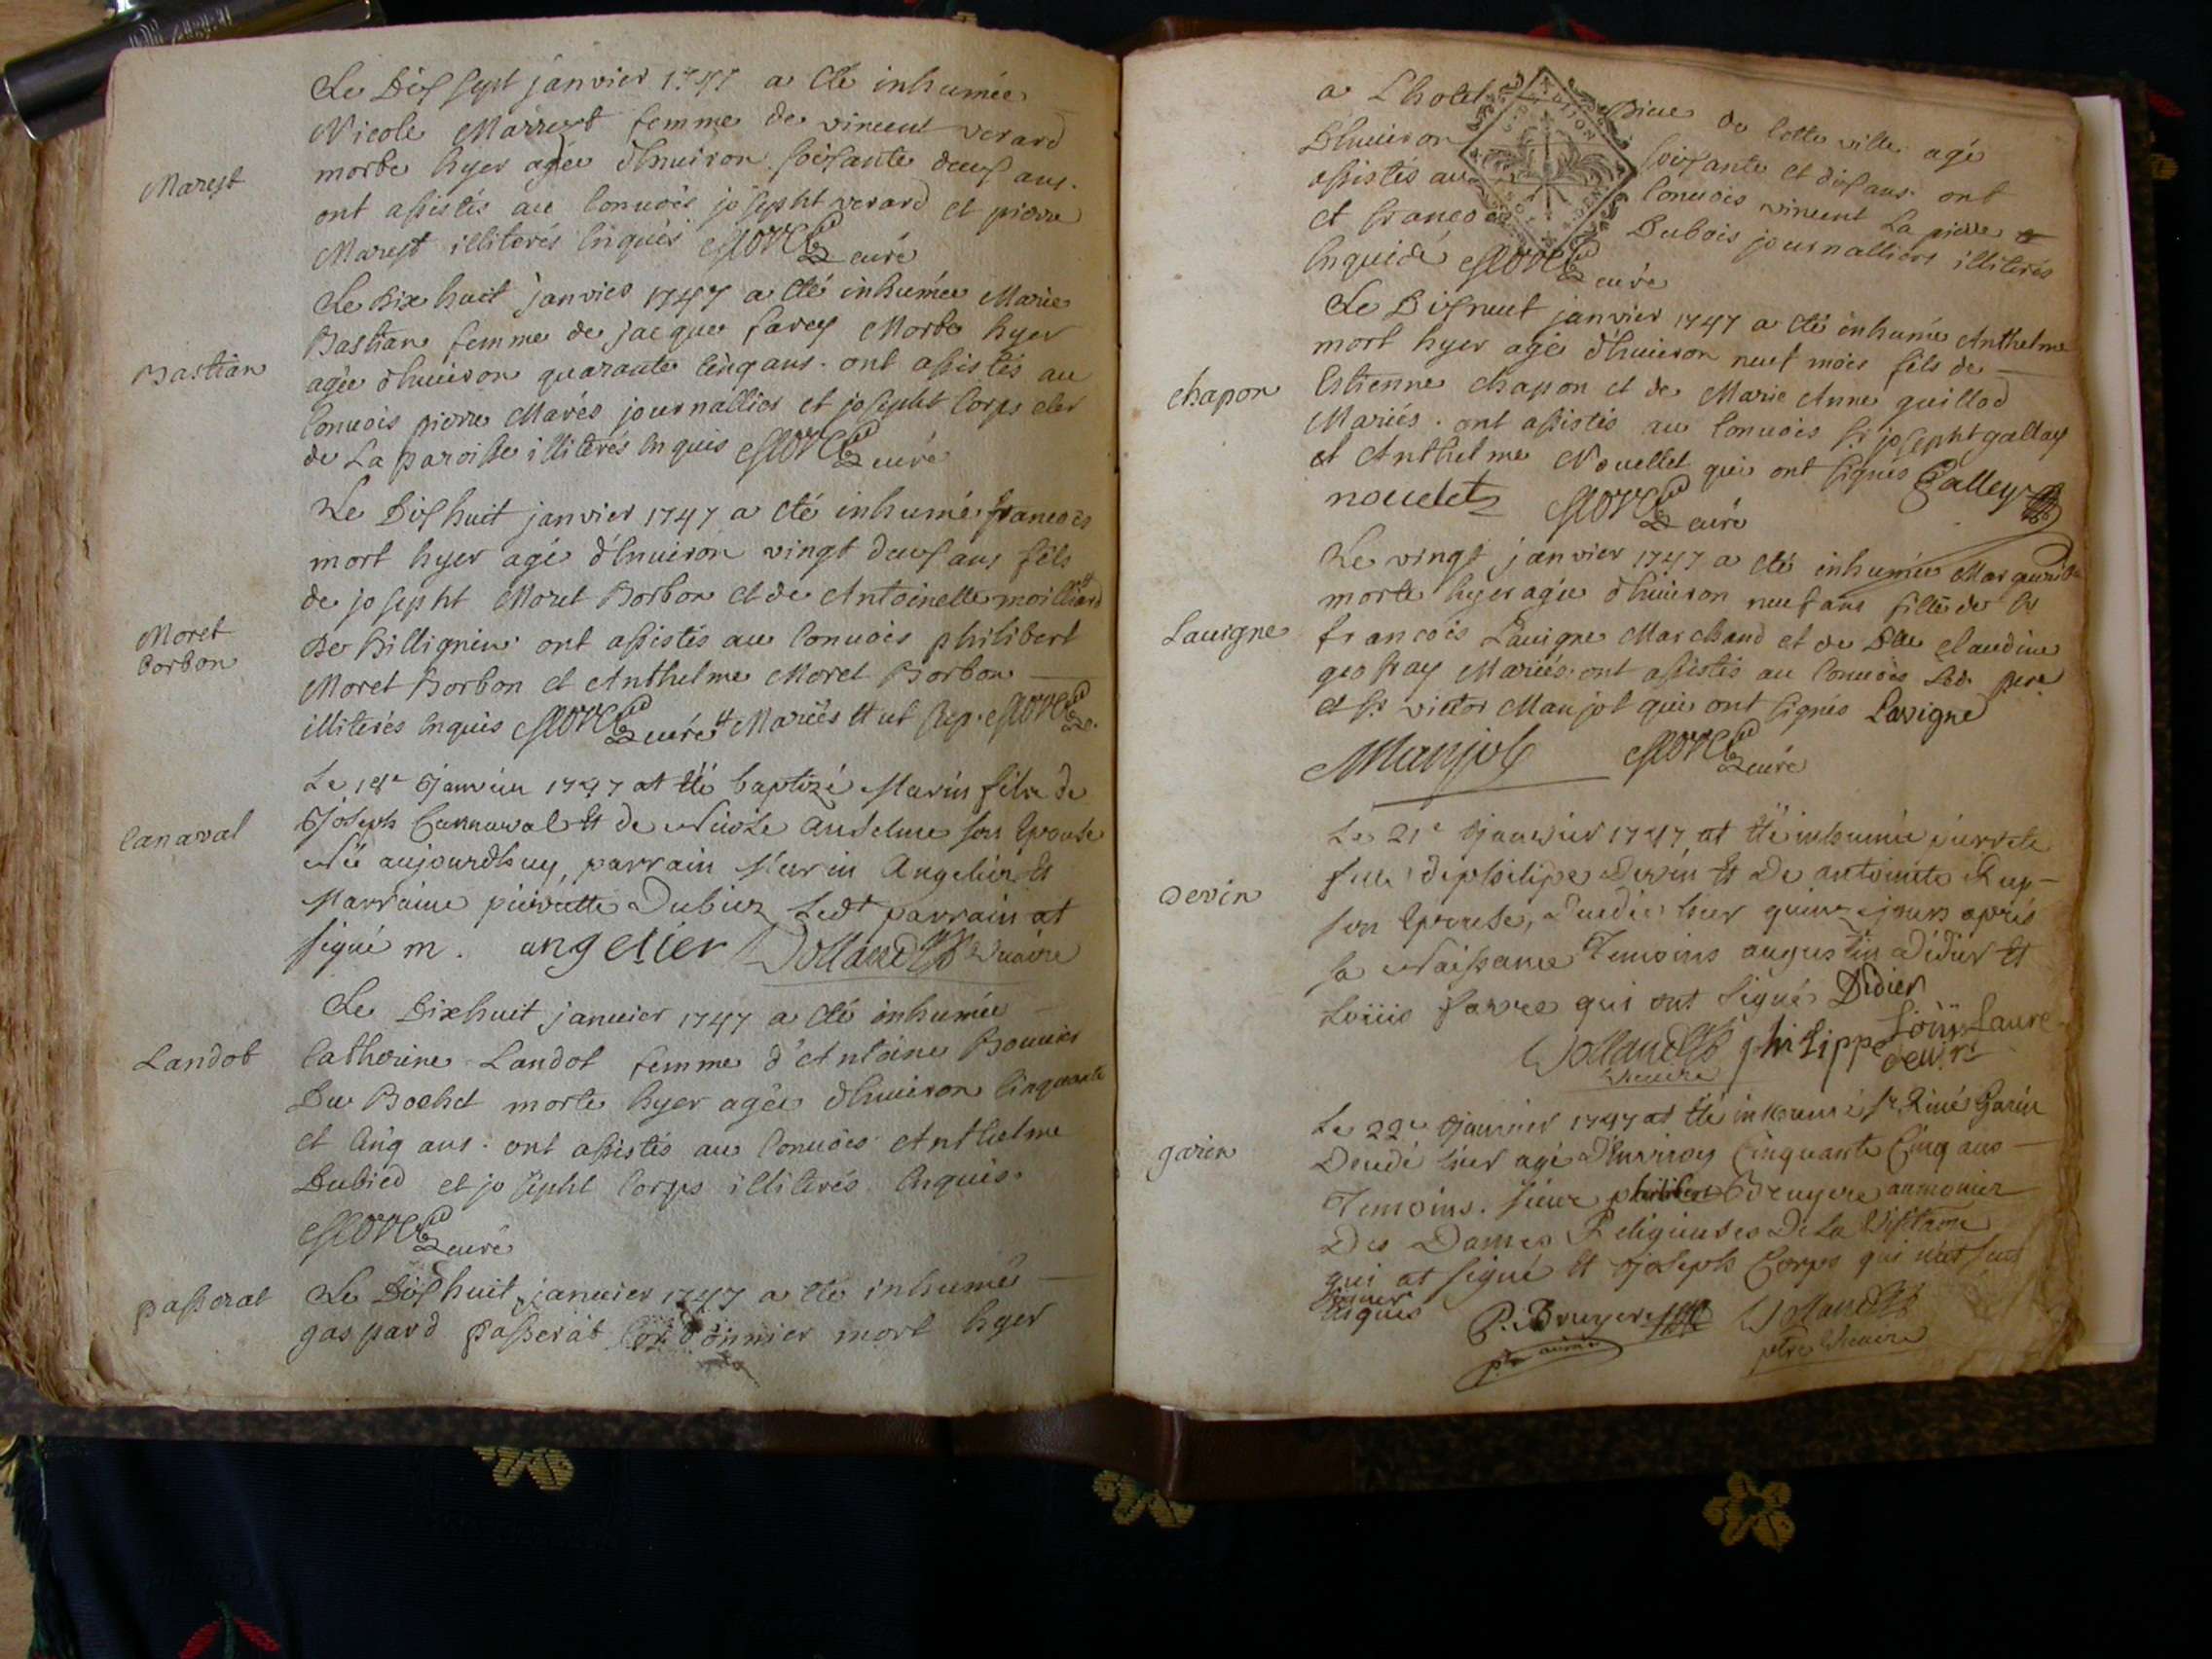 Le Dis sept janvier 1747 a été inhumée
Nicole Marrest femme de vincent verard
Marest
morte hyer agée d'henviron soisante deus ans.
ont assistés au convois josepht verard et pierre
Marest illiterés enquis curé
Le Dix huit janvier 1747 a été inhumée Marie
Bastian femme de jacque farey Morte hyer
Bastian
agée d'henviron quarante cinq ans. ont assistés au
convois pierre Marés journallier et josepht Corps cler
de La paroisse illiterés enquis curé
Le Dis huit janvier 1747 a été inhumé francois
mort hyer agé d'henviron vingt deus ans fils
de josepht Moret Borbon et de Antoinette moilliard
Moret
borbon
De Billignieu ont assistés au convois philibert
Moret Borbon et Anthelme Moret Borbon
illiterés enquis curé Mariés
Le janvier 1747 at été baptizé Marin fils de
Canaval
Joseph Cannaval et de Nicole Anselme son Epouse
Née aujourdhuy, parrain Marin Angelier et
Marraine pierrette Dubiez Ledt parrain at
signé m. angelier Vicaire
Le Dixhuit janvier 1747 a été inhumée
Landot
Catherine Landot femme d'Antoine Bouvier
Du Bochet morte hyer agée d'henviron Cinquante
et Cinq ans. ont assistés au convois Anthelme
Dubied et josepht Corps illiterés Enquis.
curé
passerat
Le Dis huit janvier 1747 a été inhumé
gaspard passerat Cordonnier mort hyer
a Lhotel Dieu de Cette ville agé
D'henviron soisante et dis ans. ont
assistés au Convois vincent La pierre
et francois Dubois journalliers illiterés
Enquis curé
Le Dis neuf janvier 1747 a été inhumé Anthelme
mort hyer agé d'henviron neuf mois fils de
chapon
Estienne chapon et de Marie Anne guillod
Mariés. ont assistés au Convois Sr josepht galley
et Anthelme Nouellet qui ont signés Galley
nouelet curé
Le vingt janvier 1747 a été inhumée Marguerite
morte hyer agée d'henviron neuf ans fille de Sr
Lauigne
francois Lauigne Marchand et de Dlle claudine
Mariés. ont assistés au Convois Led. pere
et Sr victor Manjot qui ont signés Lavigne
Manjot curé
Le 21e janvier 1747 at été inhumée pierrete
Devin
fille de philipe Devin et De antoinete
son Epouse, Decedée hier quinze jours aprés
sa Naissance Temoins augustin Didier et
Loüis favre qui ont signé Didier
Loüis favre
philippe devin
vicaire
Le 22e janvier 1747 at été inhumé Sr Réné Garin
garin
Decedé hier agé D'environ Cinquante Cinq ans
Temoins. sieur philibert Bruyere aumonier
Des Dames Religieuses De La Visitation
qui at signé et joseph Corps qui n'at sut
signer
Enquis P. Bruyere
ptre vicaire